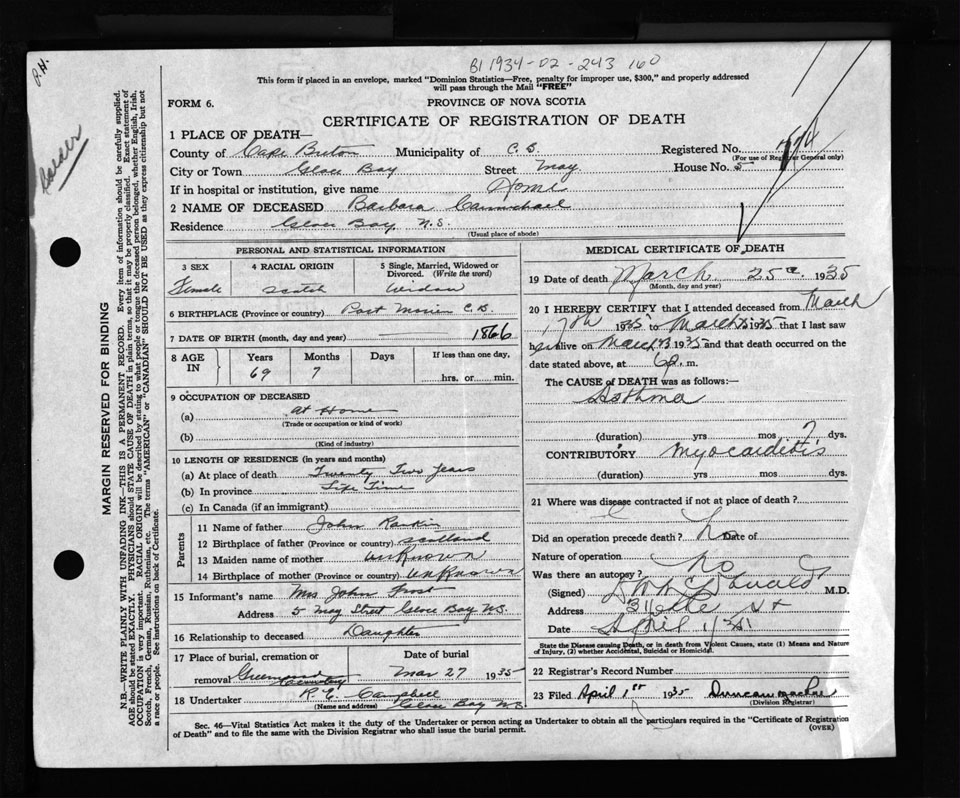 B1 1934-02-243 160
P.H.
This form if placed in an envelope, marked "Dominion Statistics—Free, penalty for improper use, $300," and properly addressed
will pass through the Mail "FREE"
FORM 6.
PROVINCE OF NOVA SCOTIA
CERTIFICATE OF REGISTRATION OF DEATH
MARGIN RESERVED FOR BINDING
N.B.—WRITE PLAINLY WITH UNFADING INK—THIS IS A PERMANENT RECORD. Every item of information should be carefully supplied.
AGE should be stated EXACTLY. PHYSICIANS should STATE CAUSE OF DEATH in plain terms, so that it may be properly classified. Exact statement of
OCCUPATION is very important. RACIAL ORIGIN will be described by stating to what people or tongue the deceased person belonged, whether English, Irish,
Scotch, French, German, Russian, Ruthenian, etc. The terms "AMERICAN" or "CANADIAN" SHOULD NOT BE USED as they express citizenship but not
a race or people. See instructions on back of Certificate.
1 PLACE OF DEATH—
County of Cape Breton Municipality of C. B. Registered No.
(For use of Registrar General only)
City or Town Glace Bay Street May House No. 5
If in hospital or institution, give name Home
2 NAME OF DECEASED Barbara Carmichael
Residence Glace Bay, N.S.
(Usual place of abode)
PERSONAL AND STATISTICAL INFORMATION
3 SEX Female
4 RACIAL ORIGIN Scotch
5 Single, Married, Widowed or Divorced. (Write the word) Widow
6 BIRTHPLACE (Province or country) Port Morien C.B.
7 DATE OF BIRTH (month, day and year) 1866
8 AGE IN Years 69 Months 7 Days If less than one day, hrs. or min.
9 OCCUPATION OF DECEASED
(a) At Home
(Trade or occupation or kind of work)
(b)
(Kind of industry)
10 LENGTH OF RESIDENCE (in years and months)
(a) At place of death Twenty Two Years
(b) In province Life Time
(c) In Canada (if an immigrant)
Parents
11 Name of father John Rankin
12 Birthplace of father (Province or country) Scotland
13 Maiden name of mother Unknown
14 Birthplace of mother (Province or country) Unknown
15 Informant's name Mrs. John Frost
Address 5 May Street Glace Bay N.S.
16 Relationship to deceased Daughter
17 Place of burial, cremation or removal Greenwood Cemetery
Date of burial Mar 27 1935
18 Undertaker R. C. Campbell
(Name and address) Glace Bay N.S.
MEDICAL CERTIFICATE OF DEATH
19 Date of death March 25th 1935
(Month, day and year)
20 I HEREBY CERTIFY that I attended deceased from March
17th 1935 to March 1935 that I last saw
her alive on March 23 1935 and that death occurred on the
date stated above, at 6 p. m.
The CAUSE OF DEATH was as follows:—
Asthma
(duration) yrs mos 7 dys.
CONTRIBUTORY Myocarditis
(duration) yrs mos dys.
21 Where was disease contracted if not at place of death?
Did an operation precede death? No Date of
Nature of operation
Was there an autopsy? No
(Signed) M.D.
Address St
Date April 1/35
State the Disease causing Death, or in death from Violent Causes, state (1) Means and Nature
of Injury, (2) whether Accidental, Suicidal or Homicidal.
22 Registrar's Record Number
23 Filed April 1st 1935 Duncan
(Division Registrar)
Sec. 46—Vital Statistics Act makes it the duty of the Undertaker or person acting as Undertaker to obtain all the particulars required in the "Certificate of Registration
of Death" and to file the same with the Division Registrar who shall issue the burial permit.
(OVER)